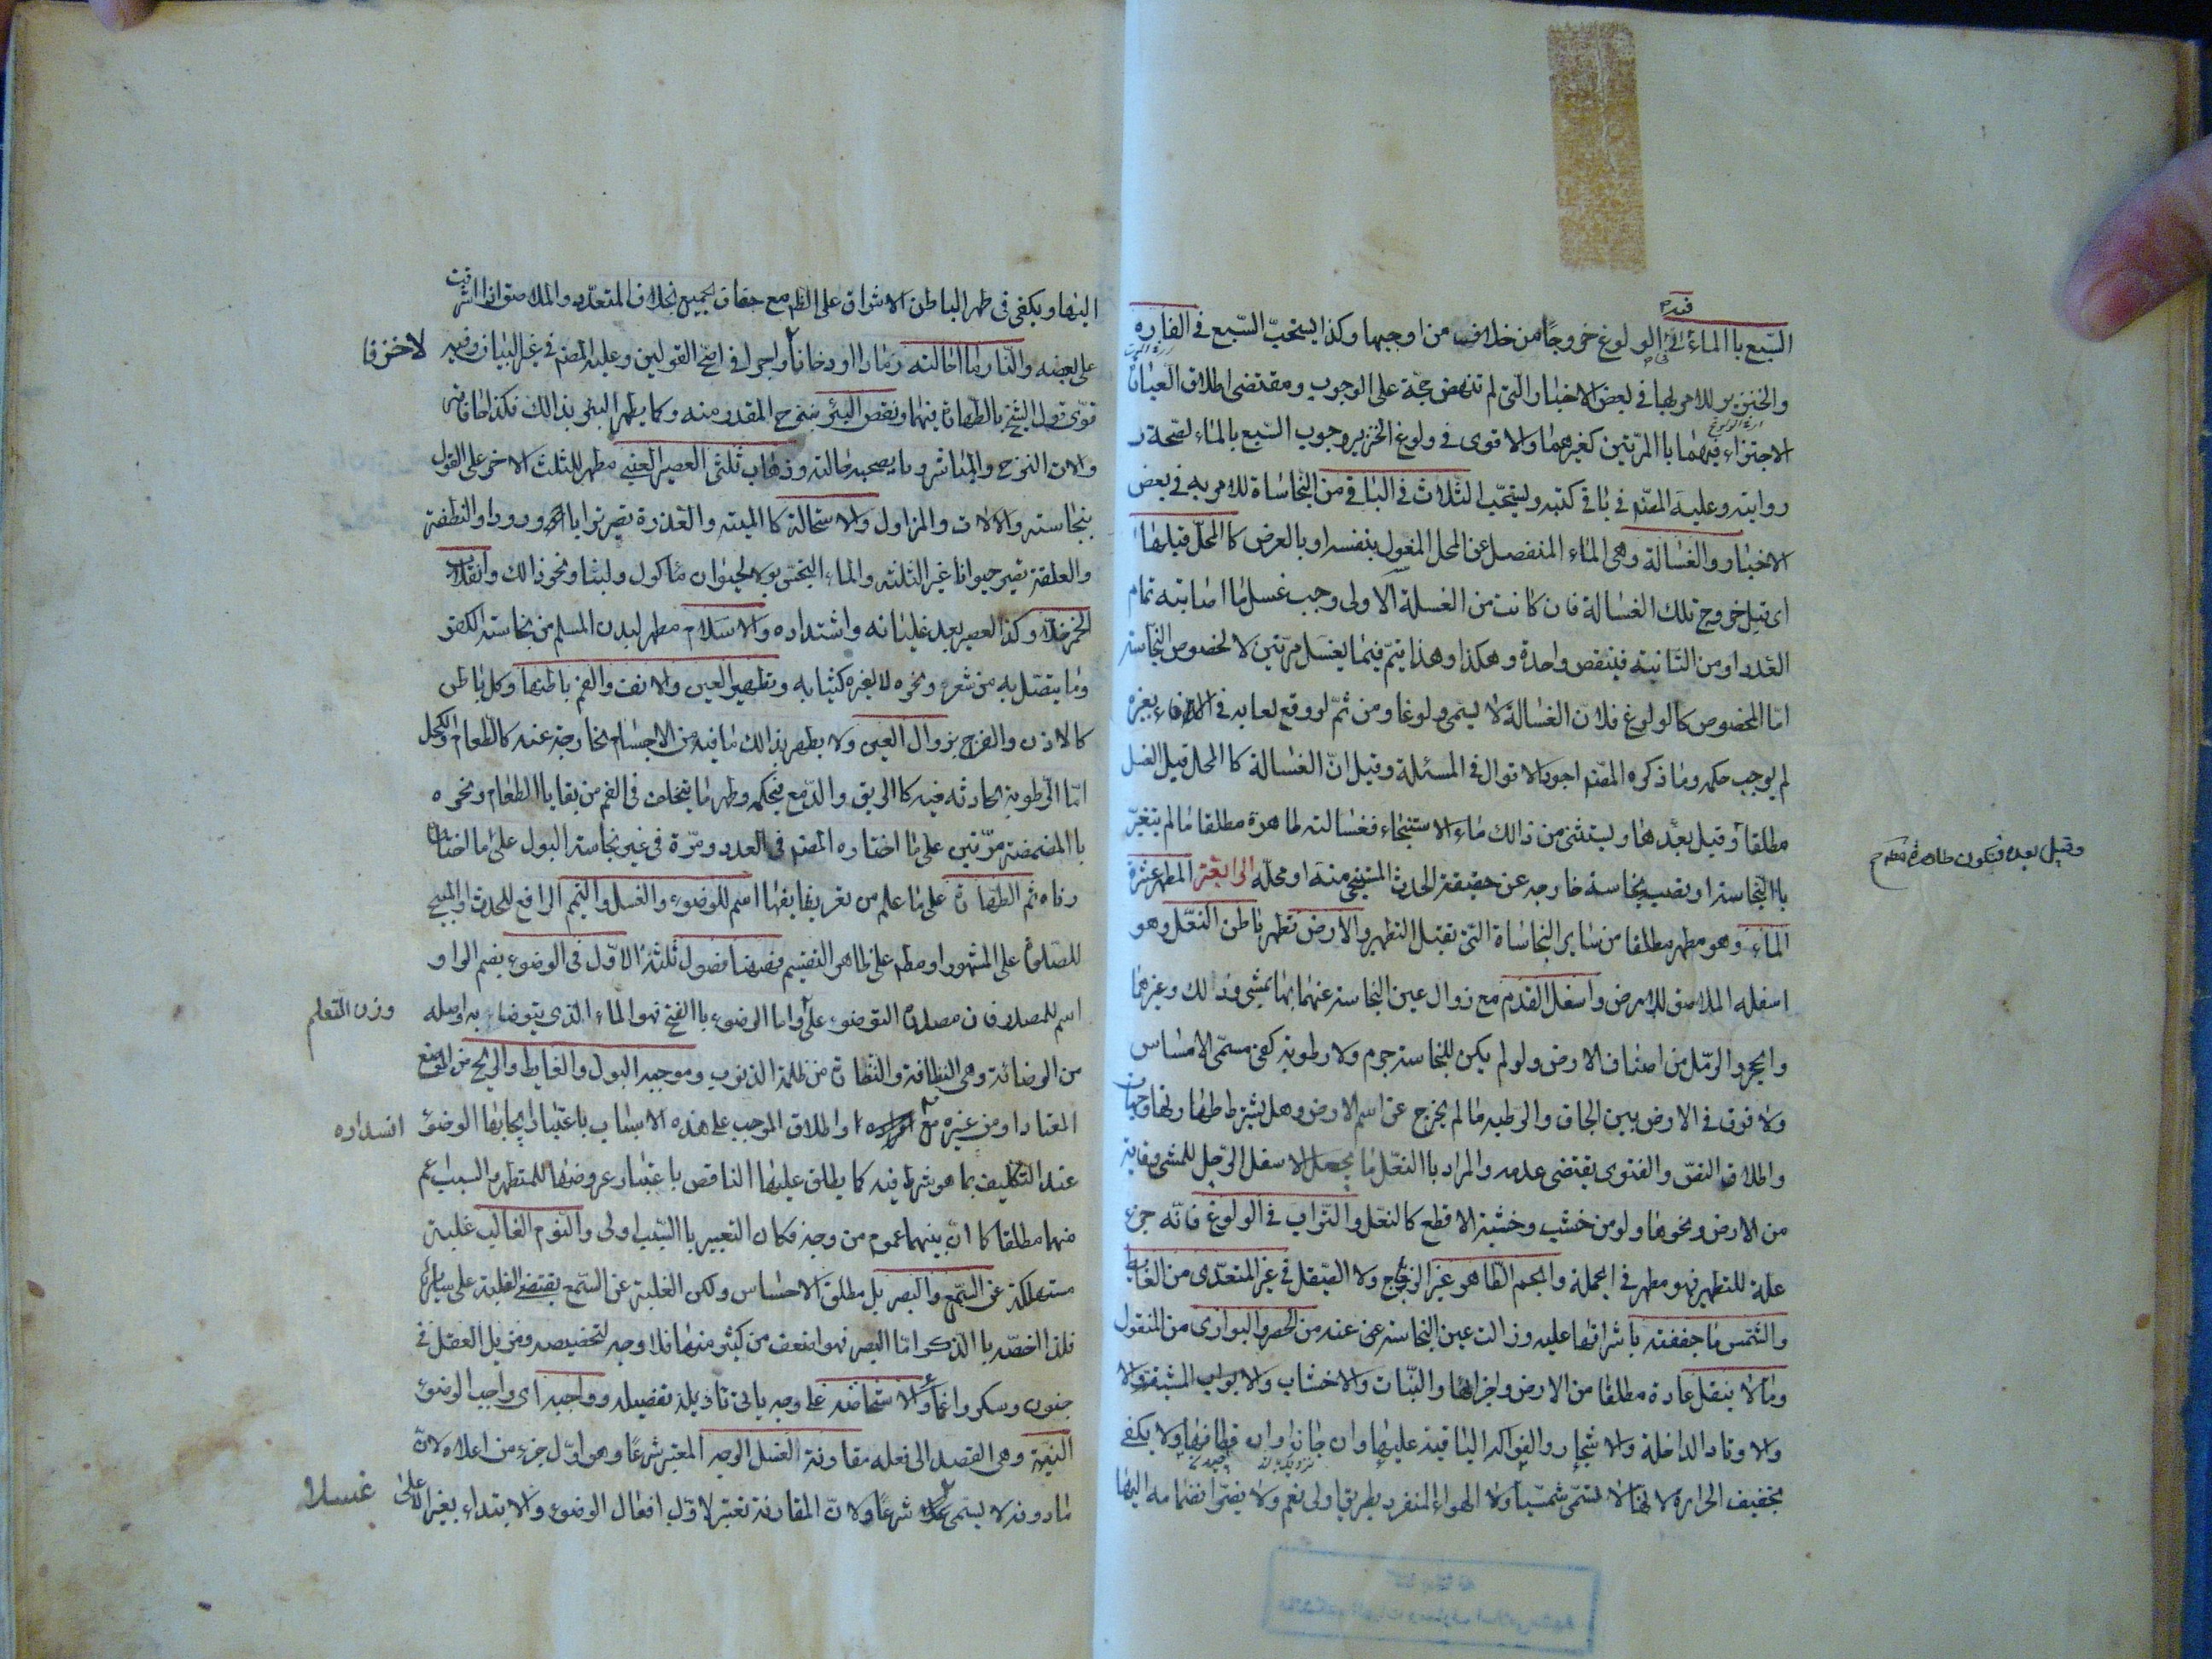 السّبع بالماء فيه أي في الولوغ خروجًا من خلاف من اوجبها وكذا يستحبّ السّبع في الفاره
والخنزير للامر بها في بعض الاخبار الّتي لم تنهض حجّة على الوجوب ومقتضى اطلاق العبارة
الاجتزاء فيهما باالمرّتين كغيرهما والاقوى في ولوغ الخنزير وجوب السّبع بالماء لصحة
روايته وعليه المصنّف في باقي كتبه ويستحبّ الثلاث في الباقي من النجاسات للامر به في بعض
الاخبار والغسالة وهي الماء المنفصل عن المحل المغسول بنفسه او بالعرض كاالمحلّ قبلها
اي قبل خروج تلك الغسالة فان كانت من الغسلة الاولى وجب غسل ما اصابته تمام
العدد او من الثانية فينقص واحدة وهكذا وهذا يتمّ فيما يغسل مرّتين لا لخصوص النجاسة
امّا المخصوص كالولوغ فلانّ الغسالة لا يسمّى ولوغا ومن ثمّ لو وقع لعابه في الاناء بغيره
لم يوجب حكمه وما ذكره المصنّف اجود الاقوال في المسئلة وقيل انّ الغسالة كاالمحل قبل الغسل
مطلقا وقيل بعدها ويستثنى من ذالك ماء الاستنجاء فغسالته طاهرة مطلقا ما لم يتغيّر
وقيل بعده فتكون طاهرة مطلقا
باالنجاسة او يصيب نجاسة خارجه عن حقيقة الحدث المستنجى منه او محلّه الرابعة المطهر عشرة
الماء وهو مطهر مطلقا من ساير النجاسات التي تقبل التطهير والارض تطهر باطن النعل وهو
اسفله الملاصق للارض واسفل القدم مع زوال عين النجاسة عنهما بها بمشي ودلك وغيرهما
والحجر والرّمل من اصناف الارض ولو لم يكن للنجاسة جرم ولا رطوبة كفى مسمّى الامساس
ولا فرق في الارض بين الجاف والرطبه ما لم يخرج عن اسم الارض وهل يشترط طهارتها وجهان
واطلاق النصّ والفتوى يقتضى عدمه والمراد باالنعّل ما يجعل لاسفل الرّجل للمشى وقاية
من الارض ونحوها ولو من خشب وخشبة الاقطع كالنعّل والتّراب في الولوغ فانّه جزء
علّة للتطهير فهو مطهر في الجملة والجسم الطّاهر غير الزجاج ولا الصّيقل في غير المتعدّى من الغايط
والشّمس ما جففته باشراقها عليه وزالت عين النجاسة عن عنه من الحصر والبوارى من المنقول
وما لا ينقل عادة مطلقا من الارض واجزائها والنّبات والاخشاب والابواب المثبتة
والاوتاد الداخلة والاشجار والفواكه الباقية عليها وان حان اوان قطافها ولا يكفى
تجفيف الحرارة لانّها لا تسمّى شمسًا ولا الهواء المنفرد بطريق اولى نعم ولا يضرّ انضمامه اليها
اليها ويكفى في طهر الباطن الاشراق على الظاهر مع جفاف الجميع بخلاف المتعدّد والملاصق اذا اشرقت
على بعضه والنّار ما احالته رمادا او دخانا ولجرا في اصحّ القولين وعليه المصنّف في غير البيان وفيه
لا خزفا
قوّى قول الشيخ بالطّهارة فيهما ونقص البئر بنزح المقدر منه وكما يطهر البئر بذالك فكذا حافاته
والات النزح والمباشر وما يصحبه حالته وذهاب ثلثى العصير العنبى مطهر للثلث الاخر على القول
بنجاسته والالات والمزاول والاستحالة كاالميته والعذرة تصير ترابا او دودا والنطفة
والعلقة تصير حيوانا غير الثلثه والماء النجس بولا لحيوان مأكول ولبنا ونحو ذالك وانقلاب
الخمر خلّا وكذا العصير بعد غليانه واشتداده والاسلام مطهر لبدن المسلم من نجاسة الكفر
وما يتصّل به من شعر ونحوه لا لغيره كثيابه وتطهير العين والانف والفم باطنها وكل باطن
كالاذن والفرج بزوال العين ولا يطهر بذالك ما فيه من الاجسام الخارجة عنه كالطعام والكحل
امّا الرّطوبة الحادثه فيه كاالريق والدّمع فبحكمه وطهر ما يتخلف في الفم من بقايا الطعام ونحوه
باالمضمضة مرّتين على ما اختاره المصنّف في العدد ومرّة في غير نجاسة البول على ما اخترناه
ثم الطهارة على ما علم من تعريفها اسم للوضوء والغسل والتيمم الرافع للحدث او المبيح
للصّلوة على المشهور او مطهر على ظاهر التقسيم فهنا فصول ثلثة الاوّل في الوضوء بضم الواو
اسم للمصدر فان مصدره التوضوء على وزن التعلم واما الوضوء باالفتح فهو الماء الذي يتوضاء به واصله
من الوضائة وهي النظافة والنضارة من ظلمة الذنوب وموجبه البول والغايط والريح من الموضع
المعتاد او من غيره مع انسداده واطلاق الموجب على هذه الاسباب باعتبار ايجابها الوضوء
عند التكليف بما هو شرط فيه كما يطلق عليها الناقض باعتبار عروضها للمتطهر والسبب اعم
منهما مطلقا كما انّ بينهما عموم من وجه فكان التعبير باالسّبب اولى والنّوم الغالب غلبة
مستهلكة عن السّمع والبصر بل مطلق الاحساس ولكن الغلبة عن السّمع يقتضى الغلبة على سايرها
فلذا اخصّه باالذكر امّا البصر فهو اضعف من كثير منها فلا وجه لتخصيصه ومزيل العقل في
جنون وسكر واغماء والاستحاضة على وجه ياتى تفصيله وواجبه اى واجب الوضوء
النيّة وهي القصد الى فعله مقارنة لغسل الوجه المعتبر شرعًا وهو اوّل جزء من اعلاه لانّ
ما دونه لا يسمى غسلا شرعًا ولانّ المقارنة تعتبر لاوّل افعال الوضوء والابتداء بغير الاعلى